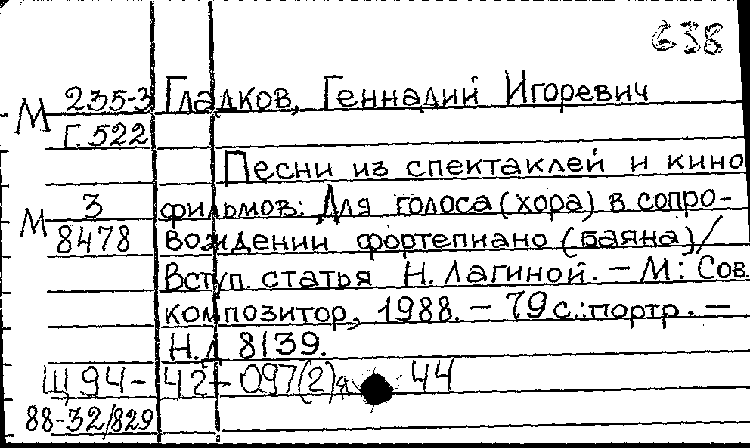 638
М 235-3 Гладков, Геннадий Игоревич
Г.522
Песни из спектаклей и кино
М 3 фильмов: Для голоса (хора) в сопро-
8478 вождении фортепиано (баяна)/
Вступ. статья Н. Лагиной. – М: Сов.
композитор, 1988. – 79 с.: портр. –
Н.Д 8139.
Щ 94-42-097(2)я 44
88-32/829